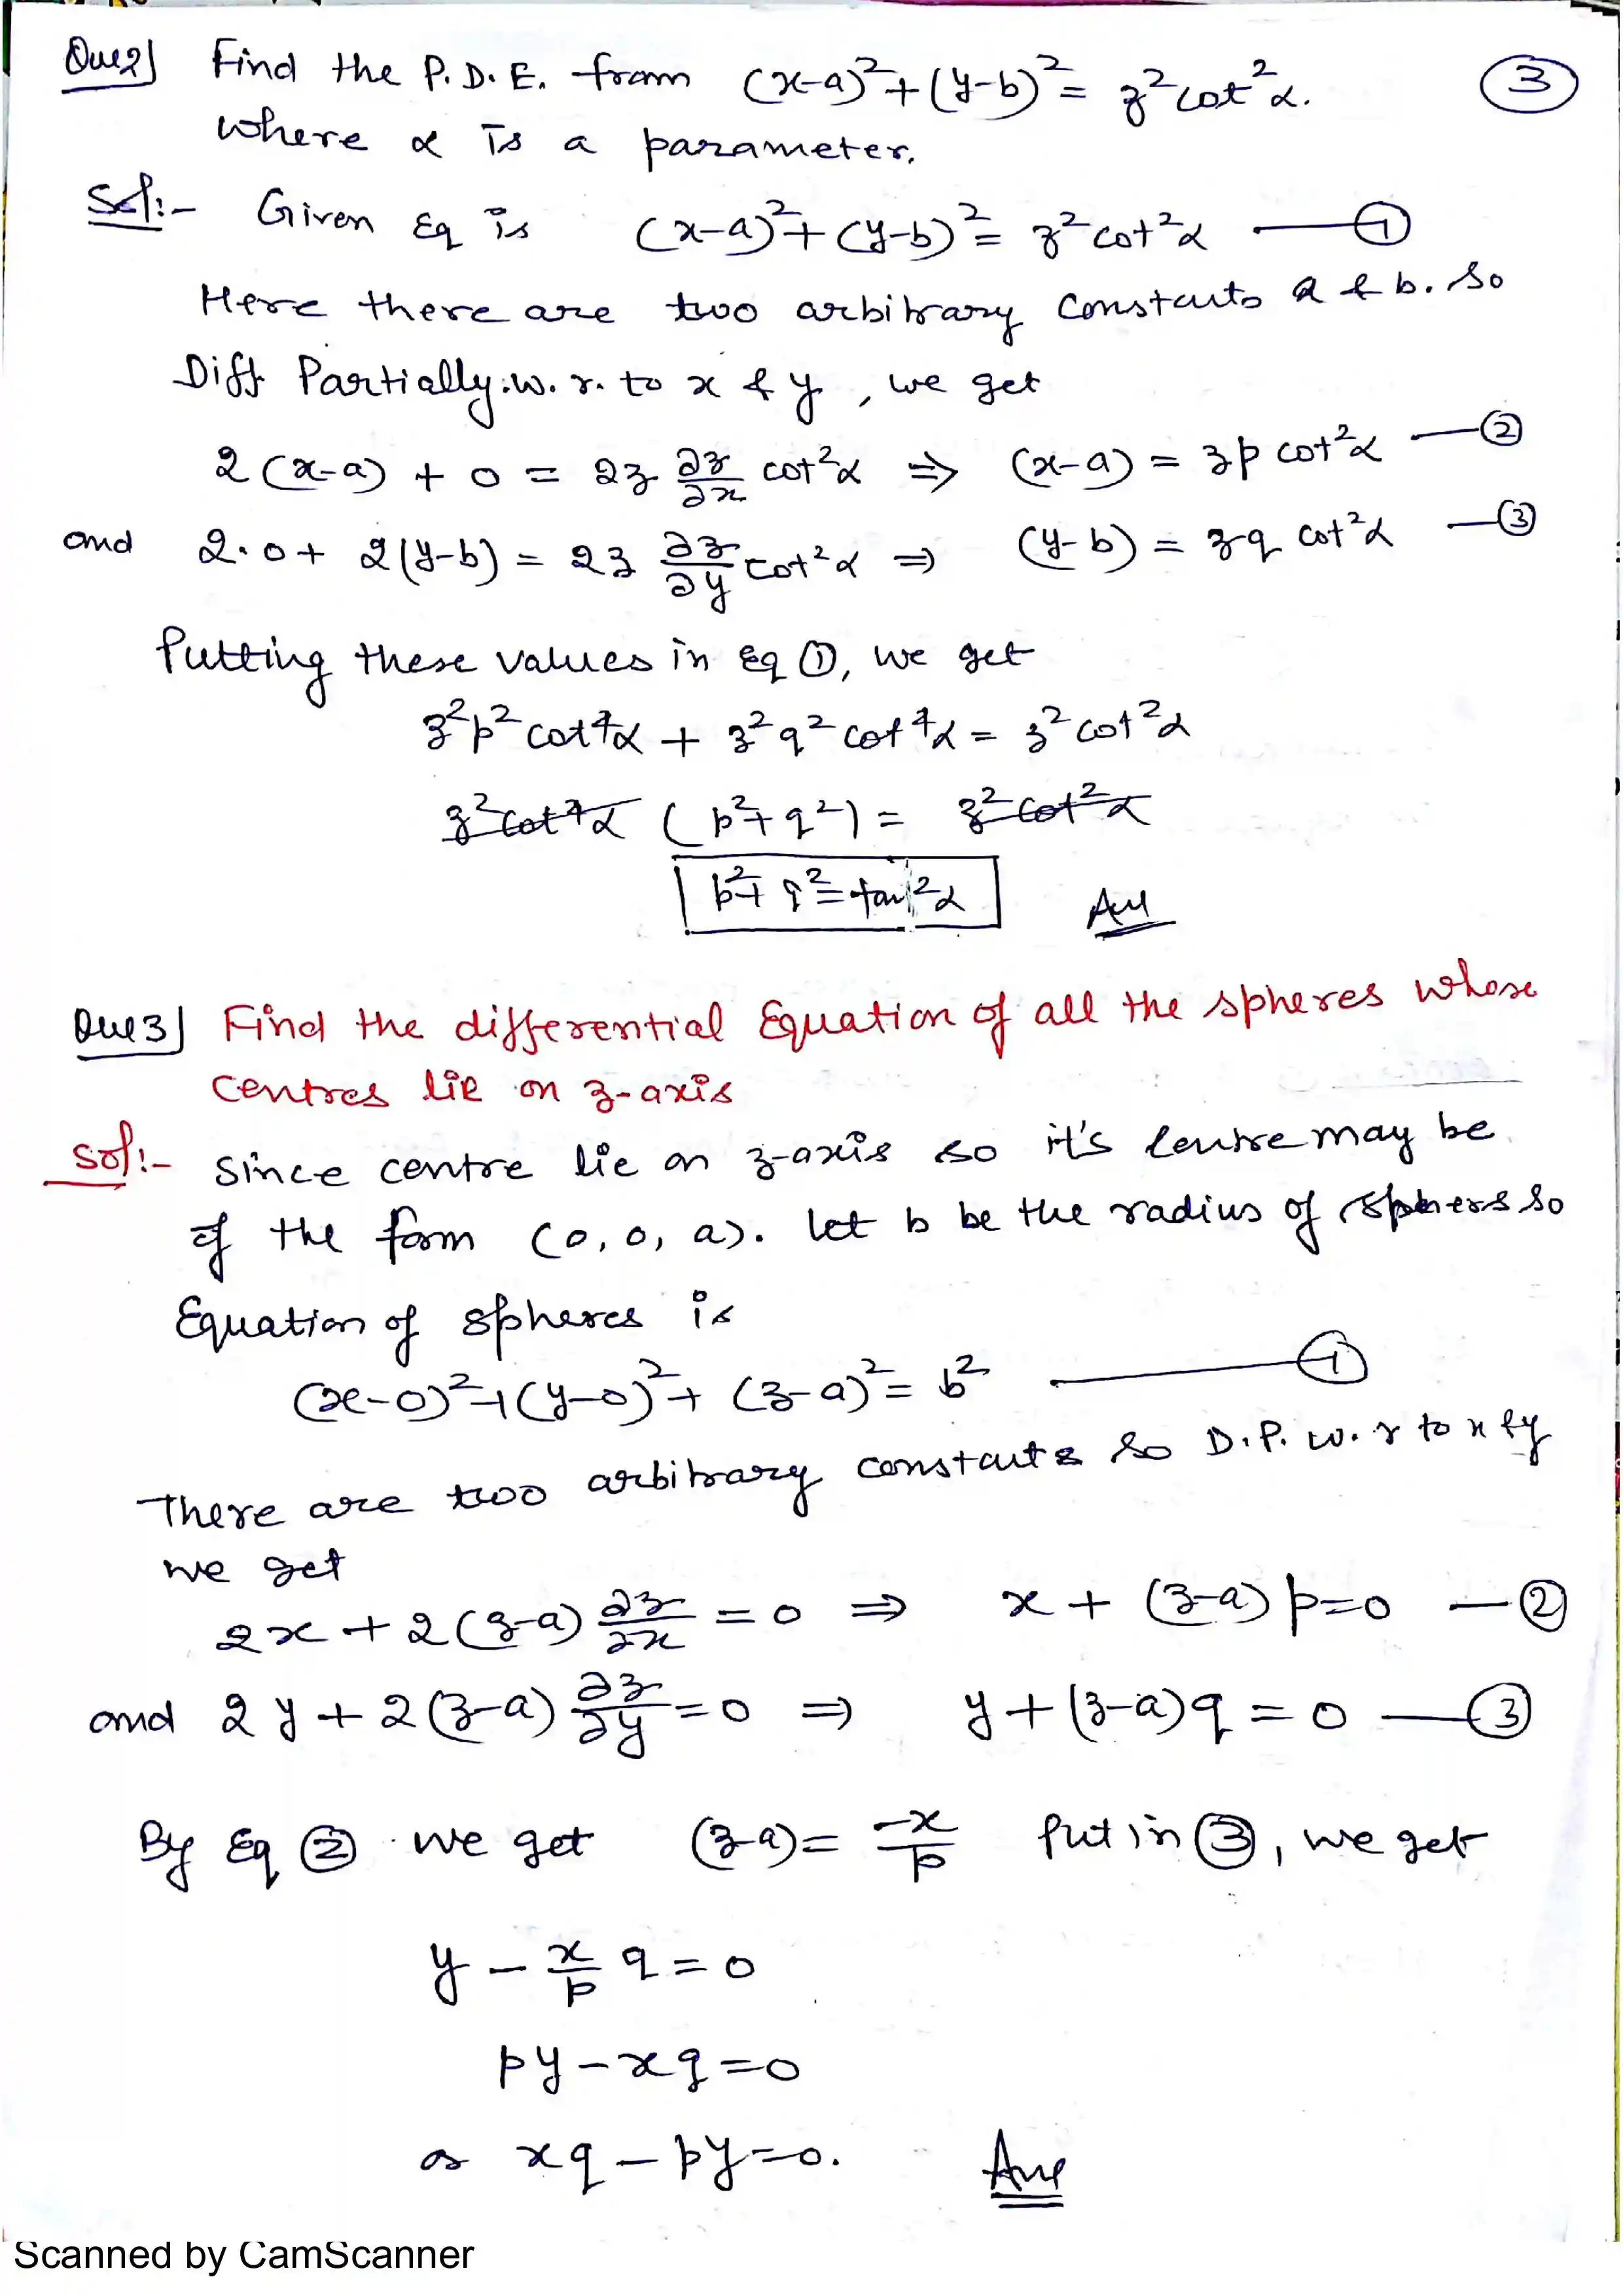 Que2] Find the P.D.E. from (x-a)²+(y-b)² = z²cot²α. ③
where α is a parameter.
Sol:- Given Eq is (x-a)²+(y-b)² = z²cot²α —①
Here there are two arbitrary constants a & b. So
Diff Partially w.r. to x & y, we get
2(x-a) + 0 = 2z ∂z/∂x cot²α ⇒ (x-a) = zp cot²α —②
and 2.0 + 2(y-b) = 2z ∂z/∂y cot²α ⇒ (y-b) = zq cot²α —③
Putting these values in Eq ①, we get
z²p²cot⁴α + z²q²cot⁴α = z²cot²α
z²cot⁴α (p²+q²) = z²cot²α
p²+q²=tan²α Ans
Que3] Find the differential Equation of all the spheres whose
centres lie on z-axis
Sol:- Since centre lie on z-axis so it's centre may be
of the form (0, 0, a). let b be the radius of spheres so
Equation of spheres is
(x-0)²+(y-0)²+(z-a)²=b² —①
There are two arbitrary constants So D.P. w.r to x & y
we get
2x+2(z-a) ∂z/∂x = 0 ⇒ x+(z-a)p=0 —②
and 2y+2(z-a) ∂z/∂y = 0 ⇒ y+(z-a)q=0 —③
By Eq ② we get (z-a)= -x/p Put in ③, we get
y - x/p q = 0
py-xq=0
or xq-py=0. Ans
Scanned by CamScanner